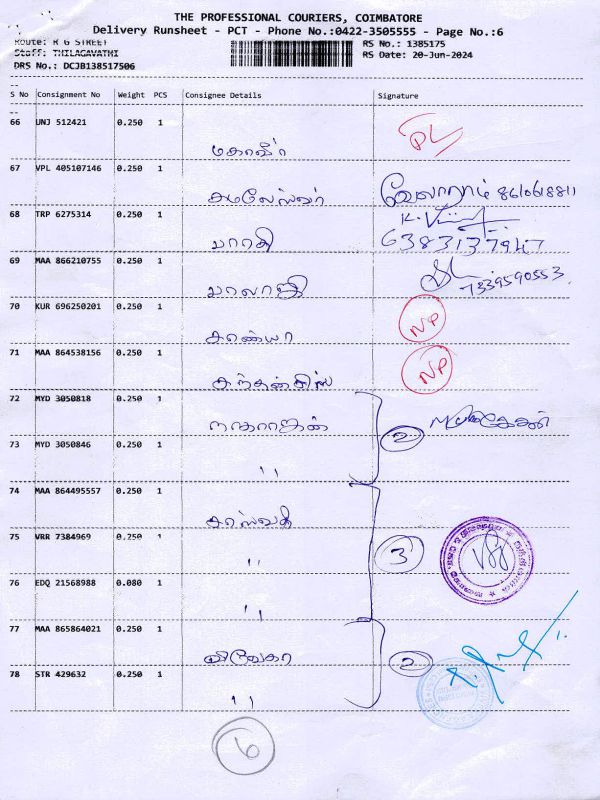 THE PROFESSIONAL COURIERS, COIMBATORE
Delivery Runsheet - PCT - Phone No.:0422-3505555 - Page No.:6
Route: R G STREET
RS No.: 1385175
Staff: THILAGAVATHI
RS Date: 20-Jun-2024
DRS No.: DCJB138517506
S No Consignment No Weight PCS Consignee Details Signature
66 UNJ 512421 0.250 1
மகாவீர்
67 VPL 405107146 0.250 1
கமலேஸ்வர்
68 TRP 6275314 0.250 1
பாரதி 6383137947
69 MAA 866210755 0.250 1
பாலாஜி 7339590553
70 KUR 696250201 0.250 1
சரண்யா NP
71 MAA 864538156 0.250 1
NP
72 MYD 3050818 0.250 1
நாகராஜன் 2
73 MYD 3050846 0.250 1
"
74 MAA 864495557 0.250 1
சரஸ்வதி
75 VRR 7384969 0.250 1
" 3
76 EDQ 21568988 0.080 1
"
77 MAA 865864021 0.250 1
விவேகா 2
78 STR 429632 0.250 1
"
6